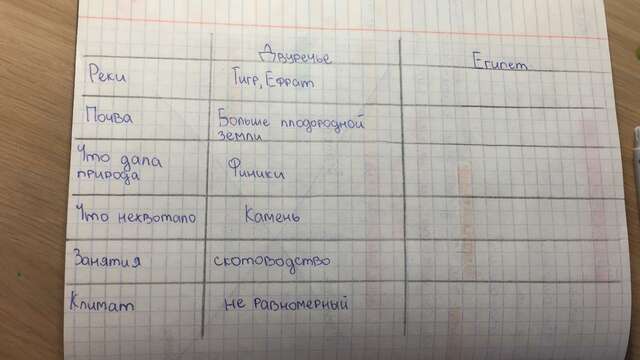 Двуречье Египет
Реки Тигр, Ефрат
Почва Больше плодородной
земли
Что дала
природа Финики
Что нехвотало Камень
Занятия скотоводство
Климат не равномерный